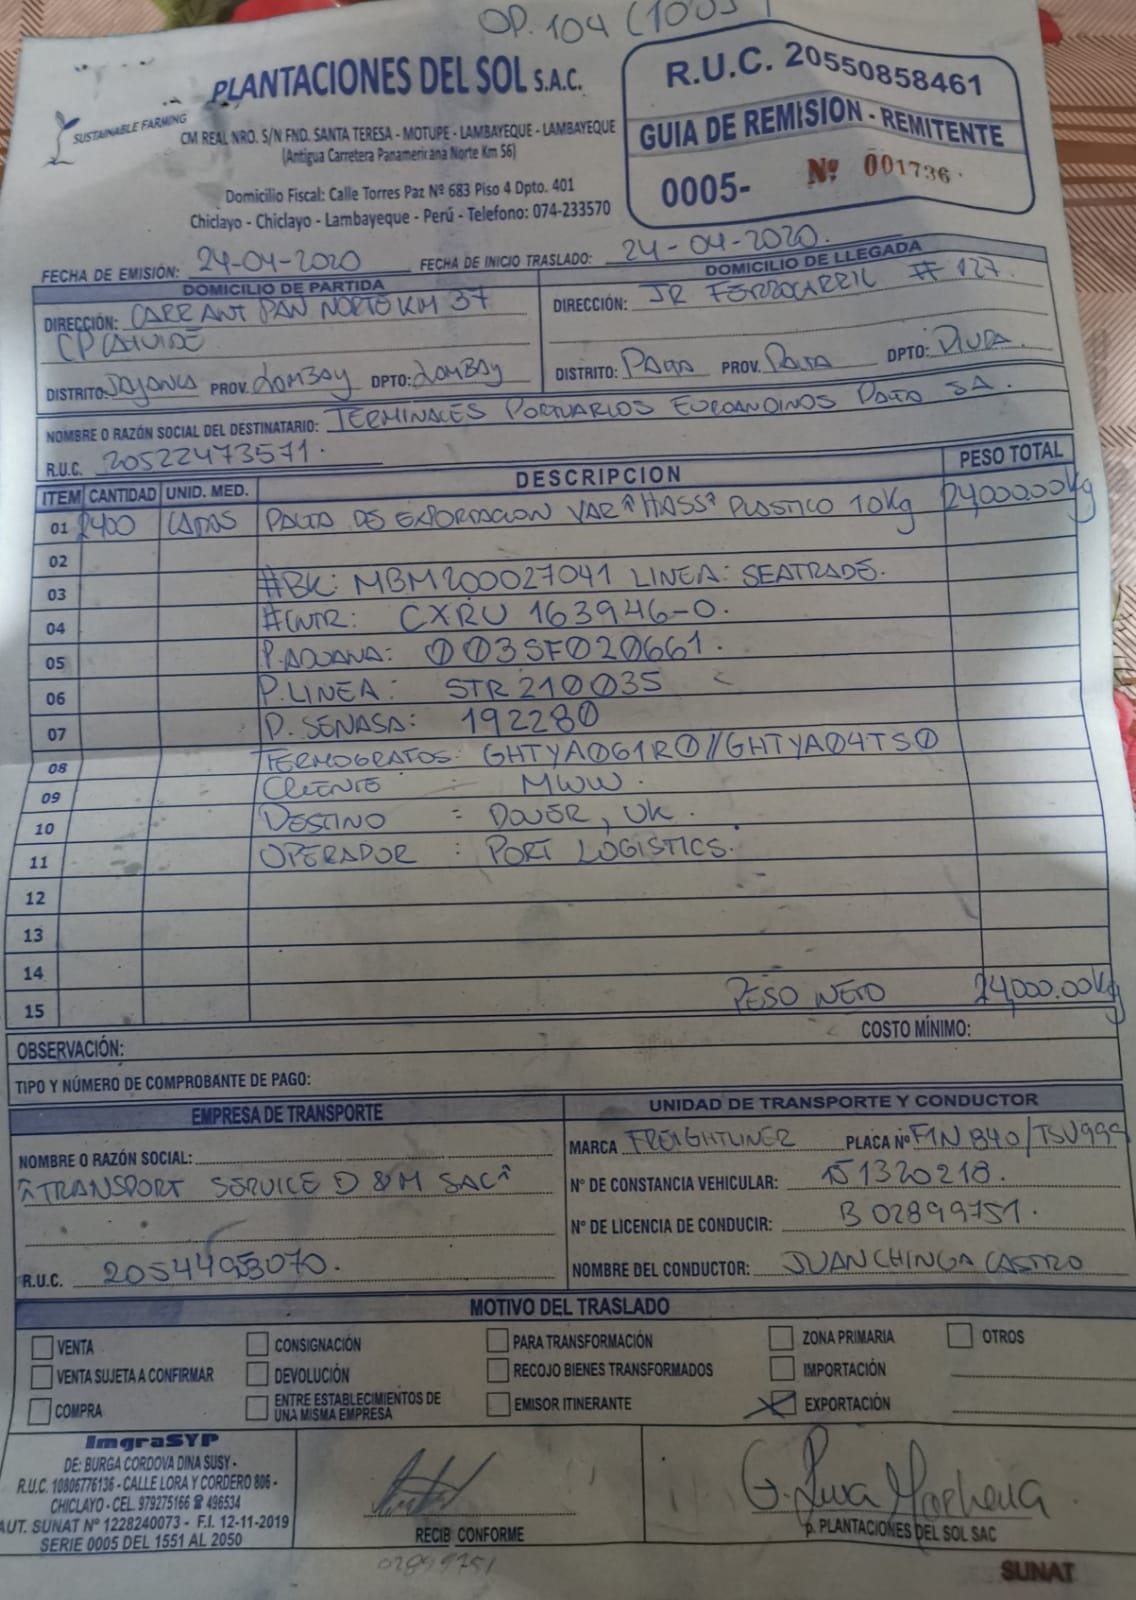 OP. 104 (1003)
PLANTACIONES DEL SOL S.A.C.
SUSTAINABLE FARMING
CM REAL NRO. S/N FND. SANTA TERESA - MOTUPE - LAMBAYEQUE - LAMBAYEQUE
(Antigua Carretera Panamericana Norte Km 56)
Domicilio Fiscal: Calle Torres Paz Nº 683 Piso 4 Dpto. 401
Chiclayo - Chiclayo - Lambayeque - Perú - Telefono: 074-233570
R.U.C. 20550858461
GUIA DE REMISION - REMITENTE
0005- Nº 001736
FECHA DE EMISIÓN: 24-04-2020 FECHA DE INICIO TRASLADO: 24-04-2020.
DOMICILIO DE PARTIDA
DIRECCIÓN: CARR ANT PAN NORTE KM 37
CP CAHUIDE
DISTRITO: JAYANCA PROV. LAMBAY DPTO: LAMBAY
DOMICILIO DE LLEGADA
DIRECCIÓN: JR FERROCARRIL # 127.
DISTRITO: PAITA PROV. PAITA DPTO: PIURA.
NOMBRE O RAZÓN SOCIAL DEL DESTINATARIO: TERMINALES PORTUARIOS EUROANDINOS PAITA SA.
R.U.C. 20522473571.
ITEM CANTIDAD UNID. MED. DESCRIPCION PESO TOTAL
01 2400 CAJAS PALTA DE EXPORTACION VAR "HASS" PLASTICO 10Kg 24,000.00Kg
02
03 #BK: MBM200027041 LINEA: SEATRADE.
04 #CNTR: CXRU 163946-0.
05 P.ADUANA: 003SF020661.
06 P.LINEA: STR210035
07 P. SENASA: 192280
08 TERMOGRAFOS: GHTYA061R0//GHTYA04TS0
09 CLIENTE : MWW.
10 DESTINO : DOVER, UK.
11 OPERADOR : PORT LOGISTICS.
12
13
14
15 PESO NETO 24,000.00Kg
OBSERVACIÓN: COSTO MÍNIMO:
TIPO Y NÚMERO DE COMPROBANTE DE PAGO:
EMPRESA DE TRANSPORTE
NOMBRE O RAZÓN SOCIAL:
"TRANSPORT SERVICE D & M SAC"
R.U.C. 20544953070.
UNIDAD DE TRANSPORTE Y CONDUCTOR
MARCA FREIGHTLINER PLACA Nº F1N 840/TSU999
Nº DE CONSTANCIA VEHICULAR: 151320218.
Nº DE LICENCIA DE CONDUCIR: B 02899751.
NOMBRE DEL CONDUCTOR: JUAN CHINGA CASTRO
MOTIVO DEL TRASLADO
VENTA CONSIGNACIÓN PARA TRANSFORMACIÓN ZONA PRIMARIA OTROS
VENTA SUJETA A CONFIRMAR DEVOLUCIÓN RECOJO BIENES TRANSFORMADOS IMPORTACIÓN
COMPRA ENTRE ESTABLECIMIENTOS DE UNA MISMA EMPRESA EMISOR ITINERANTE EXPORTACIÓN
ImgraSYP
DE: BURGA CORDOVA DINA SUSY -
R.U.C. 10806776136 - CALLE LORA Y CORDERO 806 -
CHICLAYO - CEL. 979275166 ☎ 496534
AUT. SUNAT Nº 1228240073 - F.I. 12-11-2019
SERIE 0005 DEL 1551 AL 2050
RECIBÍ CONFORME
02899751
p. PLANTACIONES DEL SOL SAC
SUNAT